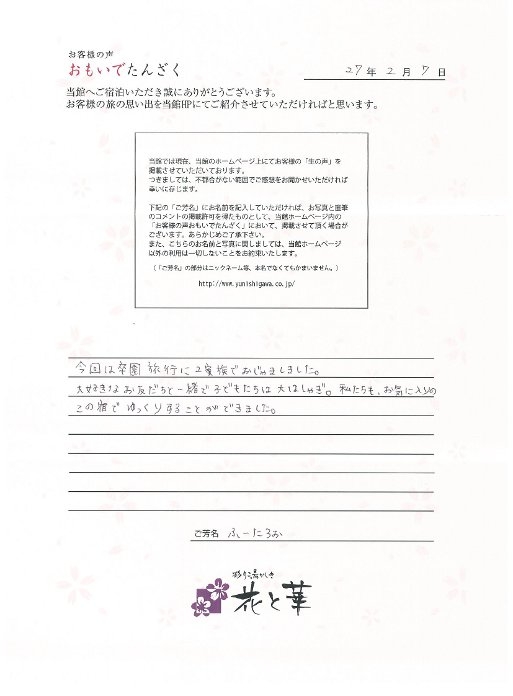 お客様の声
おもいでたんざく
27年 2月 7日
当館へご宿泊いただき誠にありがとうございます。
お客様の旅の思い出を当館HPにてご紹介させていただければと思います。
当館では現在、当館のホームページ上にてお客様の「生の声」を
掲載させていただいております。
つきましては、不都合がない範囲でご感想をお聞かせいただければ
幸いに存じます。
下記の「ご芳名」にお名前を記入していただければ、お写真と直筆
のコメントの掲載許可を得たものとして、当館ホームページ内の
「お客様の声おもいでたんざく」において、掲載させて頂く場合が
ございます。あらかじめご了承下さい。
また、こちらのお名前と写真に関しましては、当館ホームページ
以外の利用は一切しないことをお約束いたします。
(「ご芳名」の部分はニックネーム等、本名でなくてもかまいません。)
http://www.yunishigawa.co.jp/
今回は卒園旅行に2家族でおじゃましました。
大好きなお友だちと一緒で子どもたちは大はしゃぎ。私たちも、お気に入りの
この宿でゆっくりすることができました。
ご芳名 ふーたろお
彩り湯かしき
花と華